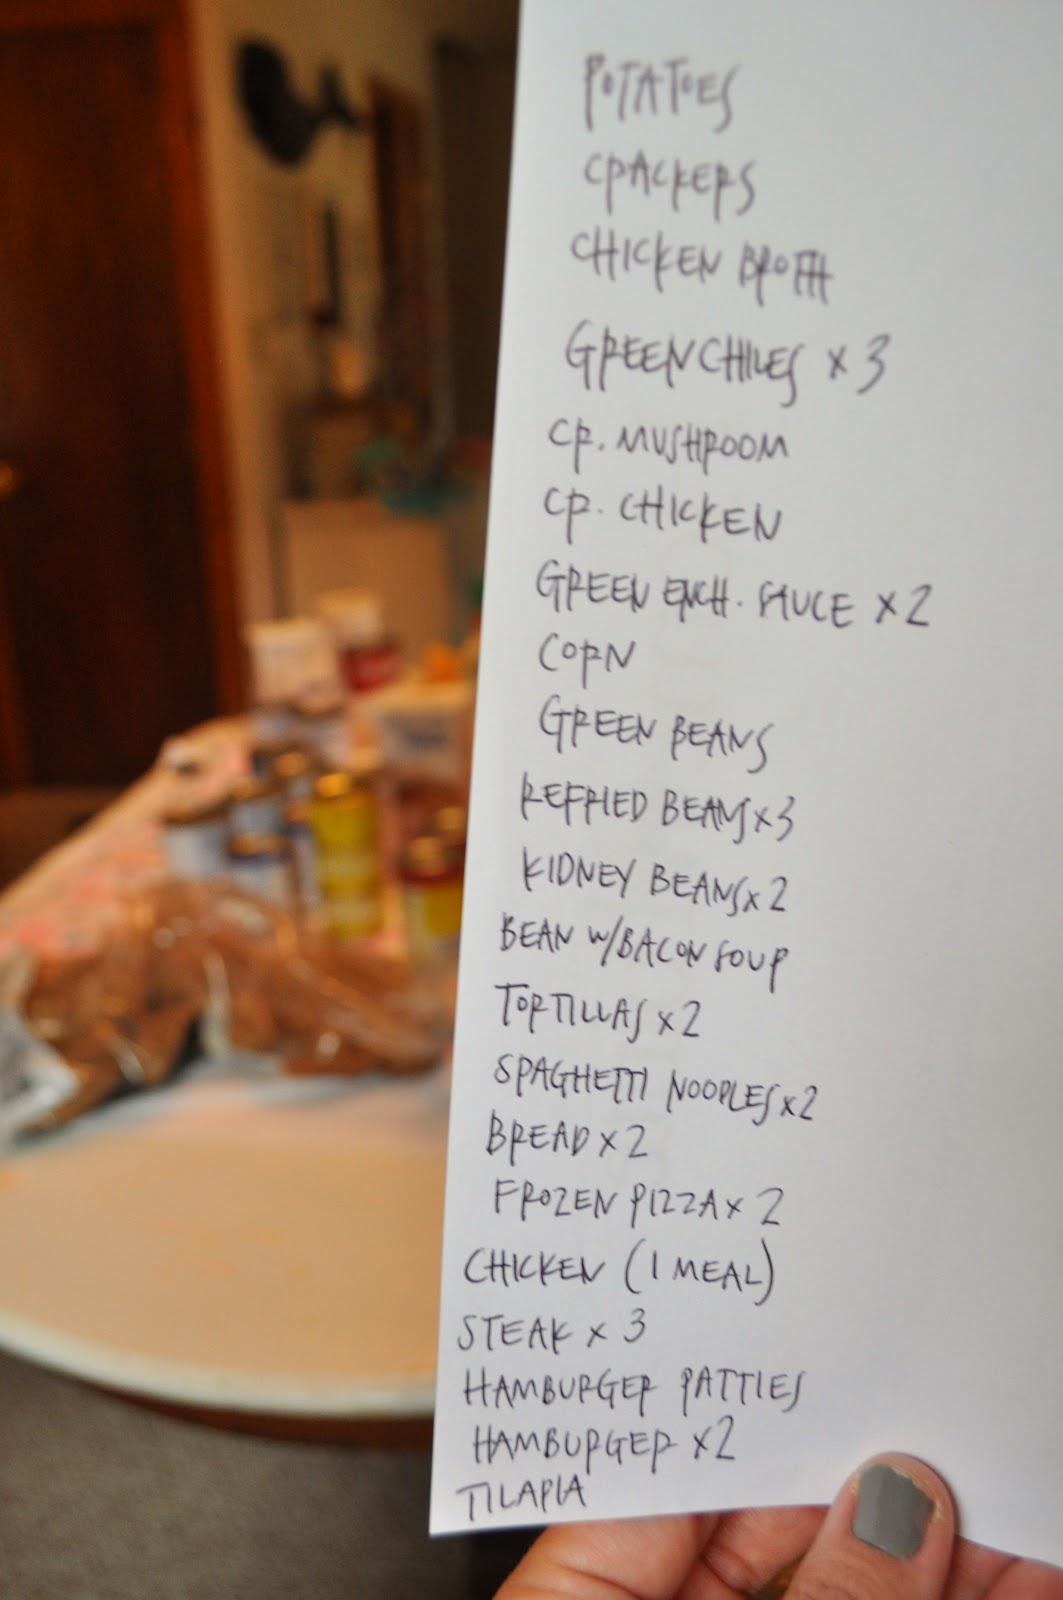 POTATOES
CRACKERS
CHICKEN BROTH
GREEN CHILES x 3
CR. MUSHROOM
CR. CHICKEN
GREEN ENCH. SAUCE x 2
CORN
GREEN BEANS
REFRIED BEANS x 3
KIDNEY BEANS x 2
BEAN W/BACON SOUP
TORTILLAS x 2
SPAGHETTI NOODLES x 2
BREAD x 2
FROZEN PIZZA x 2
CHICKEN (1 MEAL)
STEAK x 3
HAMBURGER PATTIES
HAMBURGER x 2
TILAPIA